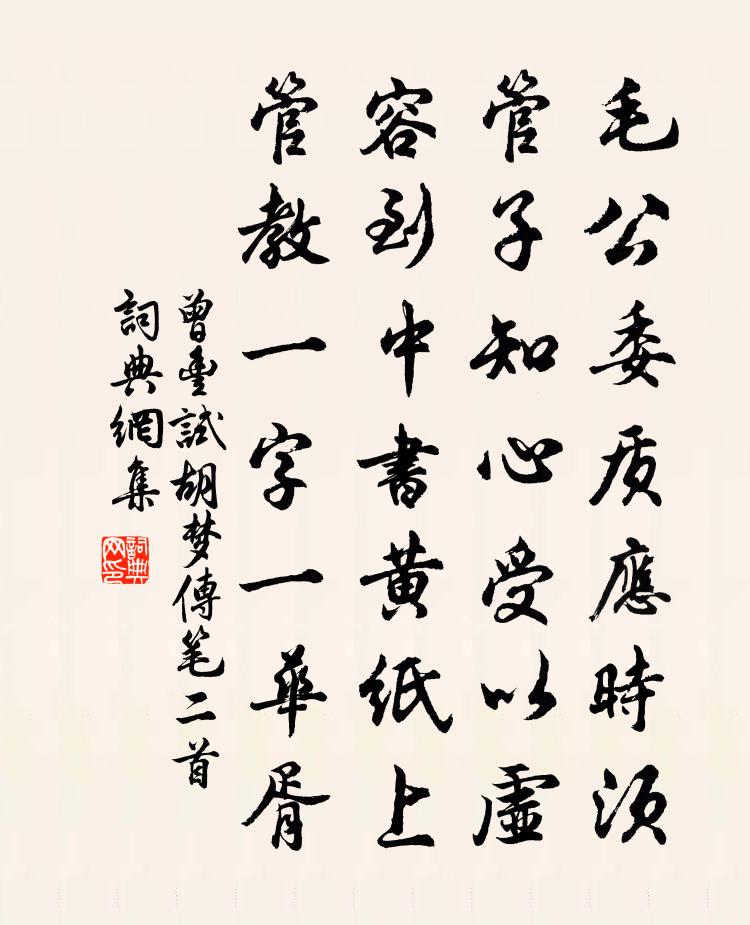 毛公委质應時須
管子知心受以虛
容到中書黄纸上
管教一字一華胥
曾豊試胡梦傳笔二首
詞典網集
詞典网印